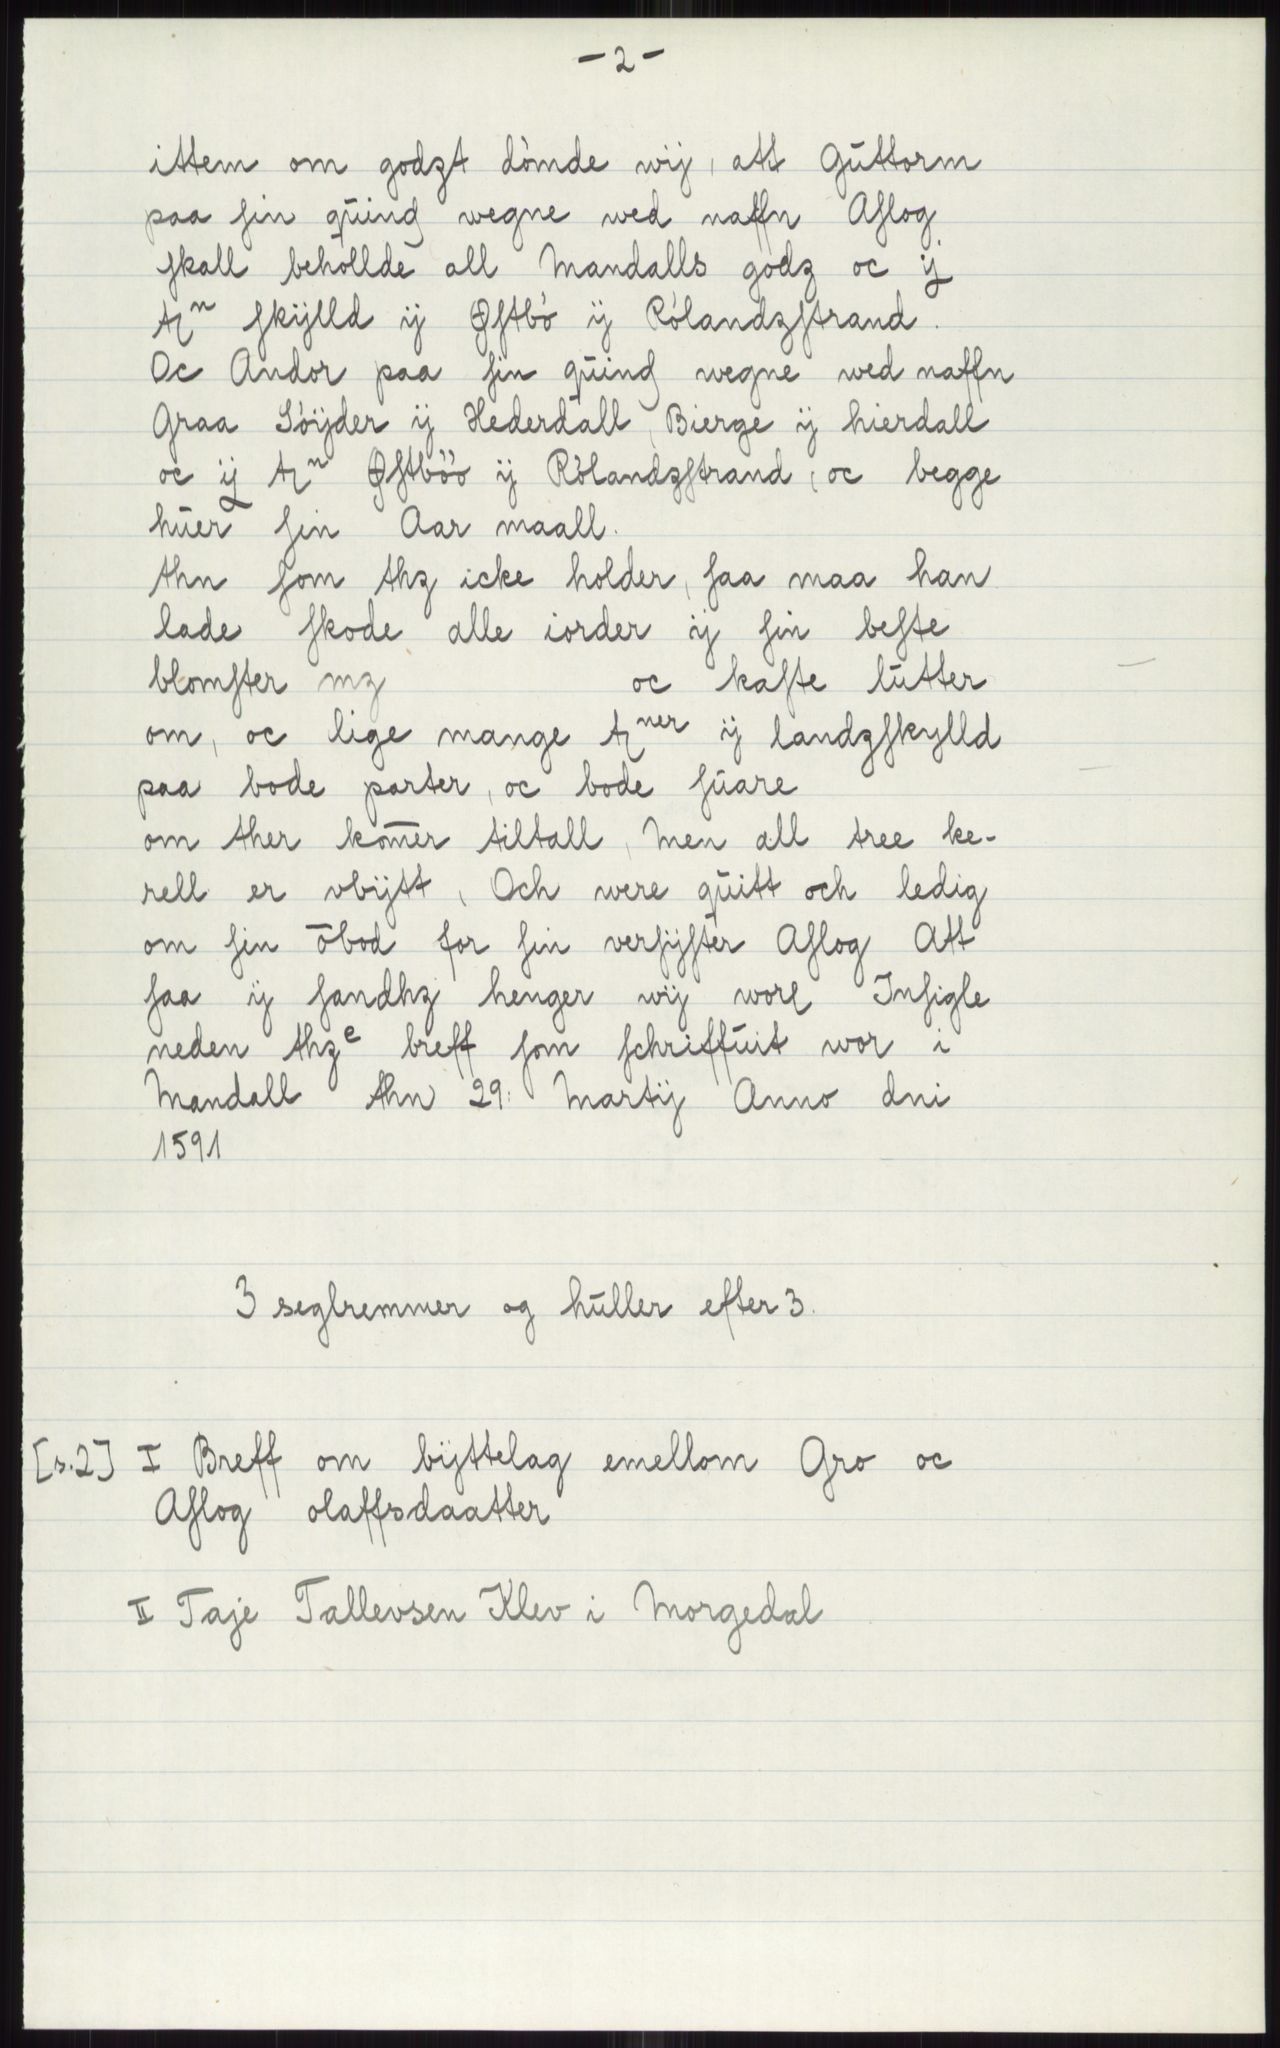 - 2 -
ittem om godzt dómde wij, att Gŭttorm
paa ſin qŭind wegne wed naffn Aſlog
ſkall behollde all Mandalls godz oc ij
tn ſkijlld ij Øſtbó ij Rólandzſtrand.
Oc Andor paa ſin qŭind wegne wed naffn
Graa Sóijder ij Hederdall, Bierge ij hierdall
oc ij tn Øſtbóó ij Rólandzſtrand, oc begge
hŭer ſin Aar maall.
thn ſom thz icke holder, ſaa maa han
lade ſkode alle iorder ij ſin beſte
blomſter mz oc kaſte lŭtter
om, oc lige mange tner ij landzſkylld
paa bode parter, oc bode ſŭare
om ther kom̅er tiltall, Men all tree ke-
rell er vbijtt, Och were qŭitt och ledig
om ſin ōbod for ſin verſijſter Aſlog Att
ſaa ij ſandhz henger wij worſ Inſigle
neden thze breff ſom ſchriffŭit wor i
Mandall thn 29: Martij Anno dni
1591
3 seglremmer og hŭller efter 3.
[s.2] I Breff om bijttelag emellom Gro oc
Aſlog olaffsdaatter
II Taje Tallevsen Klev i Morgedal